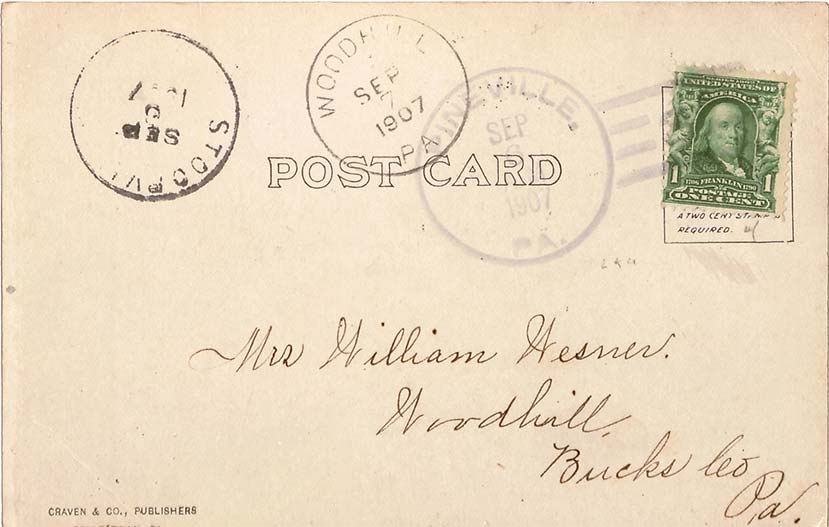 WOODHILL
SEP
7
1907
PA
SEP
PINEVILLE.
SEP
6
1907
PA.
POST CARD
SERIES 1902
UNITED STATES OF
AMERICA
1 1706 FRANKLIN 1790 1
POSTAGE
ONE CENT
A TWO CENT STAMP
REQUIRED.
Mrs William Wesner.
Woodhill,
Bucks Co
Pa.
CRAVEN & CO., PUBLISHERS